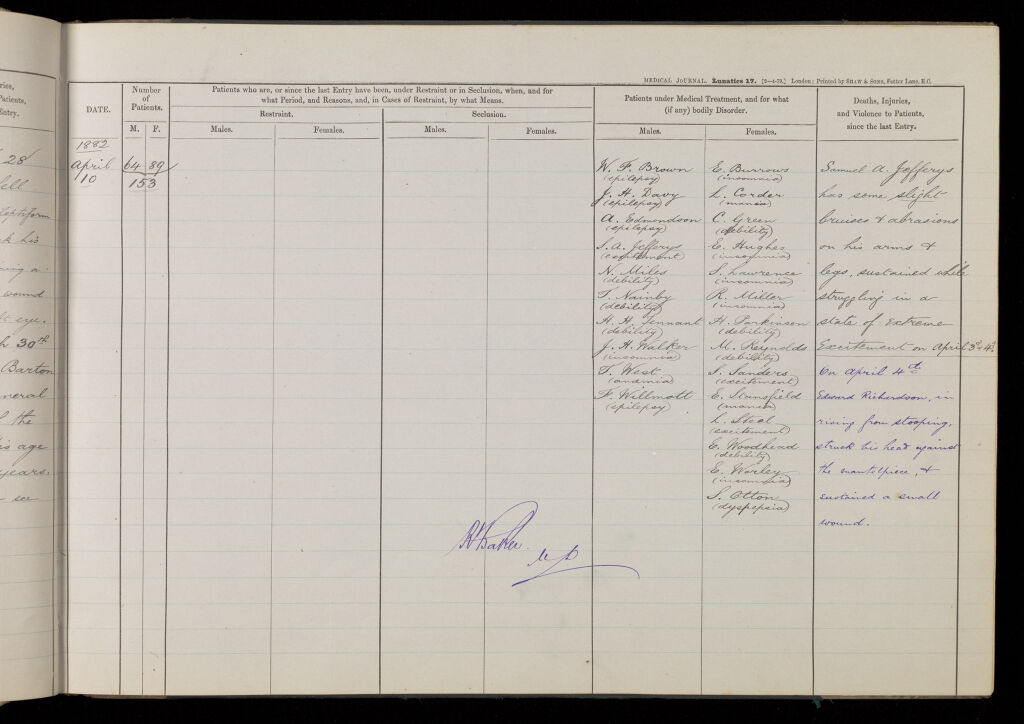 MEDICAL JOURNAL. Lunatics 17. [9—4-79.] London: Printed by SHAW & SONS, Fetter Lane, E.C.
DATE.
Number
of
Patients.
M. F.
Patients who are, or since the last Entry have been, under Restraint or in Seclusion, when, and for
what Period, and Reasons, and, in Cases of Restraint, by what Means.
Restraint.
Seclusion.
Males. Females. Males. Females.
Patients under Medical Treatment, and for what
(if any) bodily Disorder.
Males. Females.
Deaths, Injuries,
and Violence to Patients,
since the last Entry.
1882
April
10
64 89
153
W. F. Brown
(epilepsy)
J. H. Davy
(epilepsy)
A. Edmondson
(epilepsy)
S. A. Jefferys
(excitement)
N. Miles
(debility)
T. Nainby
(debility)
H. H. Tennant
(debility)
J. H. Walker
(insomnia)
T. West
(anæmia)
F. Willmott
(epilepsy)
E. Burrows
(insomnia)
L. Corder
(mania)
C. Green
(debility)
E. Hughes
(insomnia)
S. Lawrence
(insomnia)
R. Miller
(insomnia)
H. Parkinson
(debility)
M. Reynolds
(debility)
S. Sanders
(excitement)
E. Stansfield
(mania)
L. Steel
(excitement)
E. Woodhead
(debility)
E. Worley
(insomnia)
S. Otton
(dyspepsia)
Samuel A. Jefferys
has some slight
bruises & abrasions
on his arms &
legs, sustained while
struggling in a
state of extreme
Excitement on April 3rd & 4th
On April 4th
Edward Richardson, in
rising from stooping,
struck his head against
the mantelpiece, &
sustained a small
wound.
R Baker
M D
ries,
Patients,
Entry.
28
ell
eptiform
k his
ing a
wound
eye.
30th
Barton
neral
the
is age
years.
see